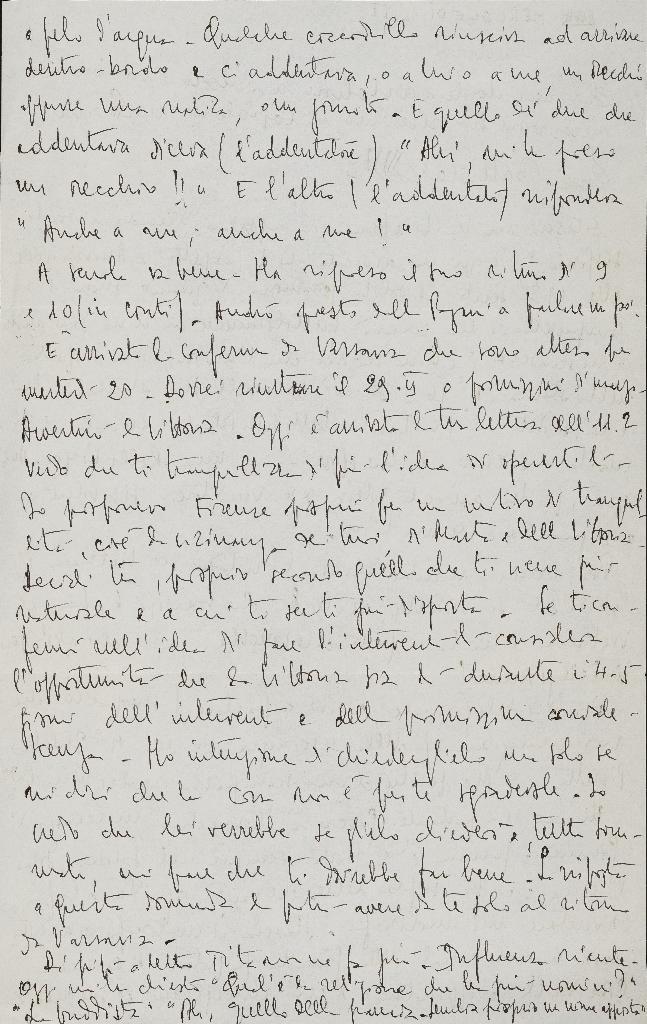 a pelo d'acqua. Qualche coccodrillo riusciva ad arrivare
dentro-bordo e ci addentava, o a lui o a me, un orecchio
oppure una natica, o un gomito. E quello dei due che
addentava diceva (l'addentatore) "Ahi, mi ha preso
un orecchio!!" E l'altro (l'addentato) rispondeva
"Anche a me, anche a me!"
A scuola va bene. Ha ripreso il suo ritmo di 9
e 10 (in conti). Andrò presto dalla a parlare un po'.
E' arrivata la conferma da Varsavia che sono atteso per
martedì 20. Dovrei rientrare il 29.II o primissimi di marzo.
Avvertirò la Vittoria. Oggi è arrivata la tua lettera dell'11.2
Vedo che ti tranquillizza di più l'idea di operarti lì.
Io proponevo Firenze proprio per un motivo di tranquil-
lità, cioè la vicinanza dei tuoi, di e della Vittoria.
Decidi tu, proprio secondo quello che ti viene più
naturale e a cui ti senti più disposta. Se ti con-
fermi nell'idea di fare l'intervento lì considera
l'opportunità che la Vittoria sia lì durante i 4-5
giorni dell'intervento e della primissima convale-
scenza. Ho intenzione di chiederglielo ma solo se
mi dici che la cosa non è per te sgradevole. Io
credo che lei verrebbe se glielo chiedessi e, tutto som-
mato, mi pare che ti dovrebbe far bene. La risposta
a questa domanda la potrò avere da te solo al ritorno
da Varsavia.
Di pipì a letto Tita non ne fa più. Influenza rientrata.
Oggi mi ha chiesto "Qual'è la religione che ha più nomini?"
"La buddista" "Ah, quella della pancia. Sembra proprio un nome apposta"